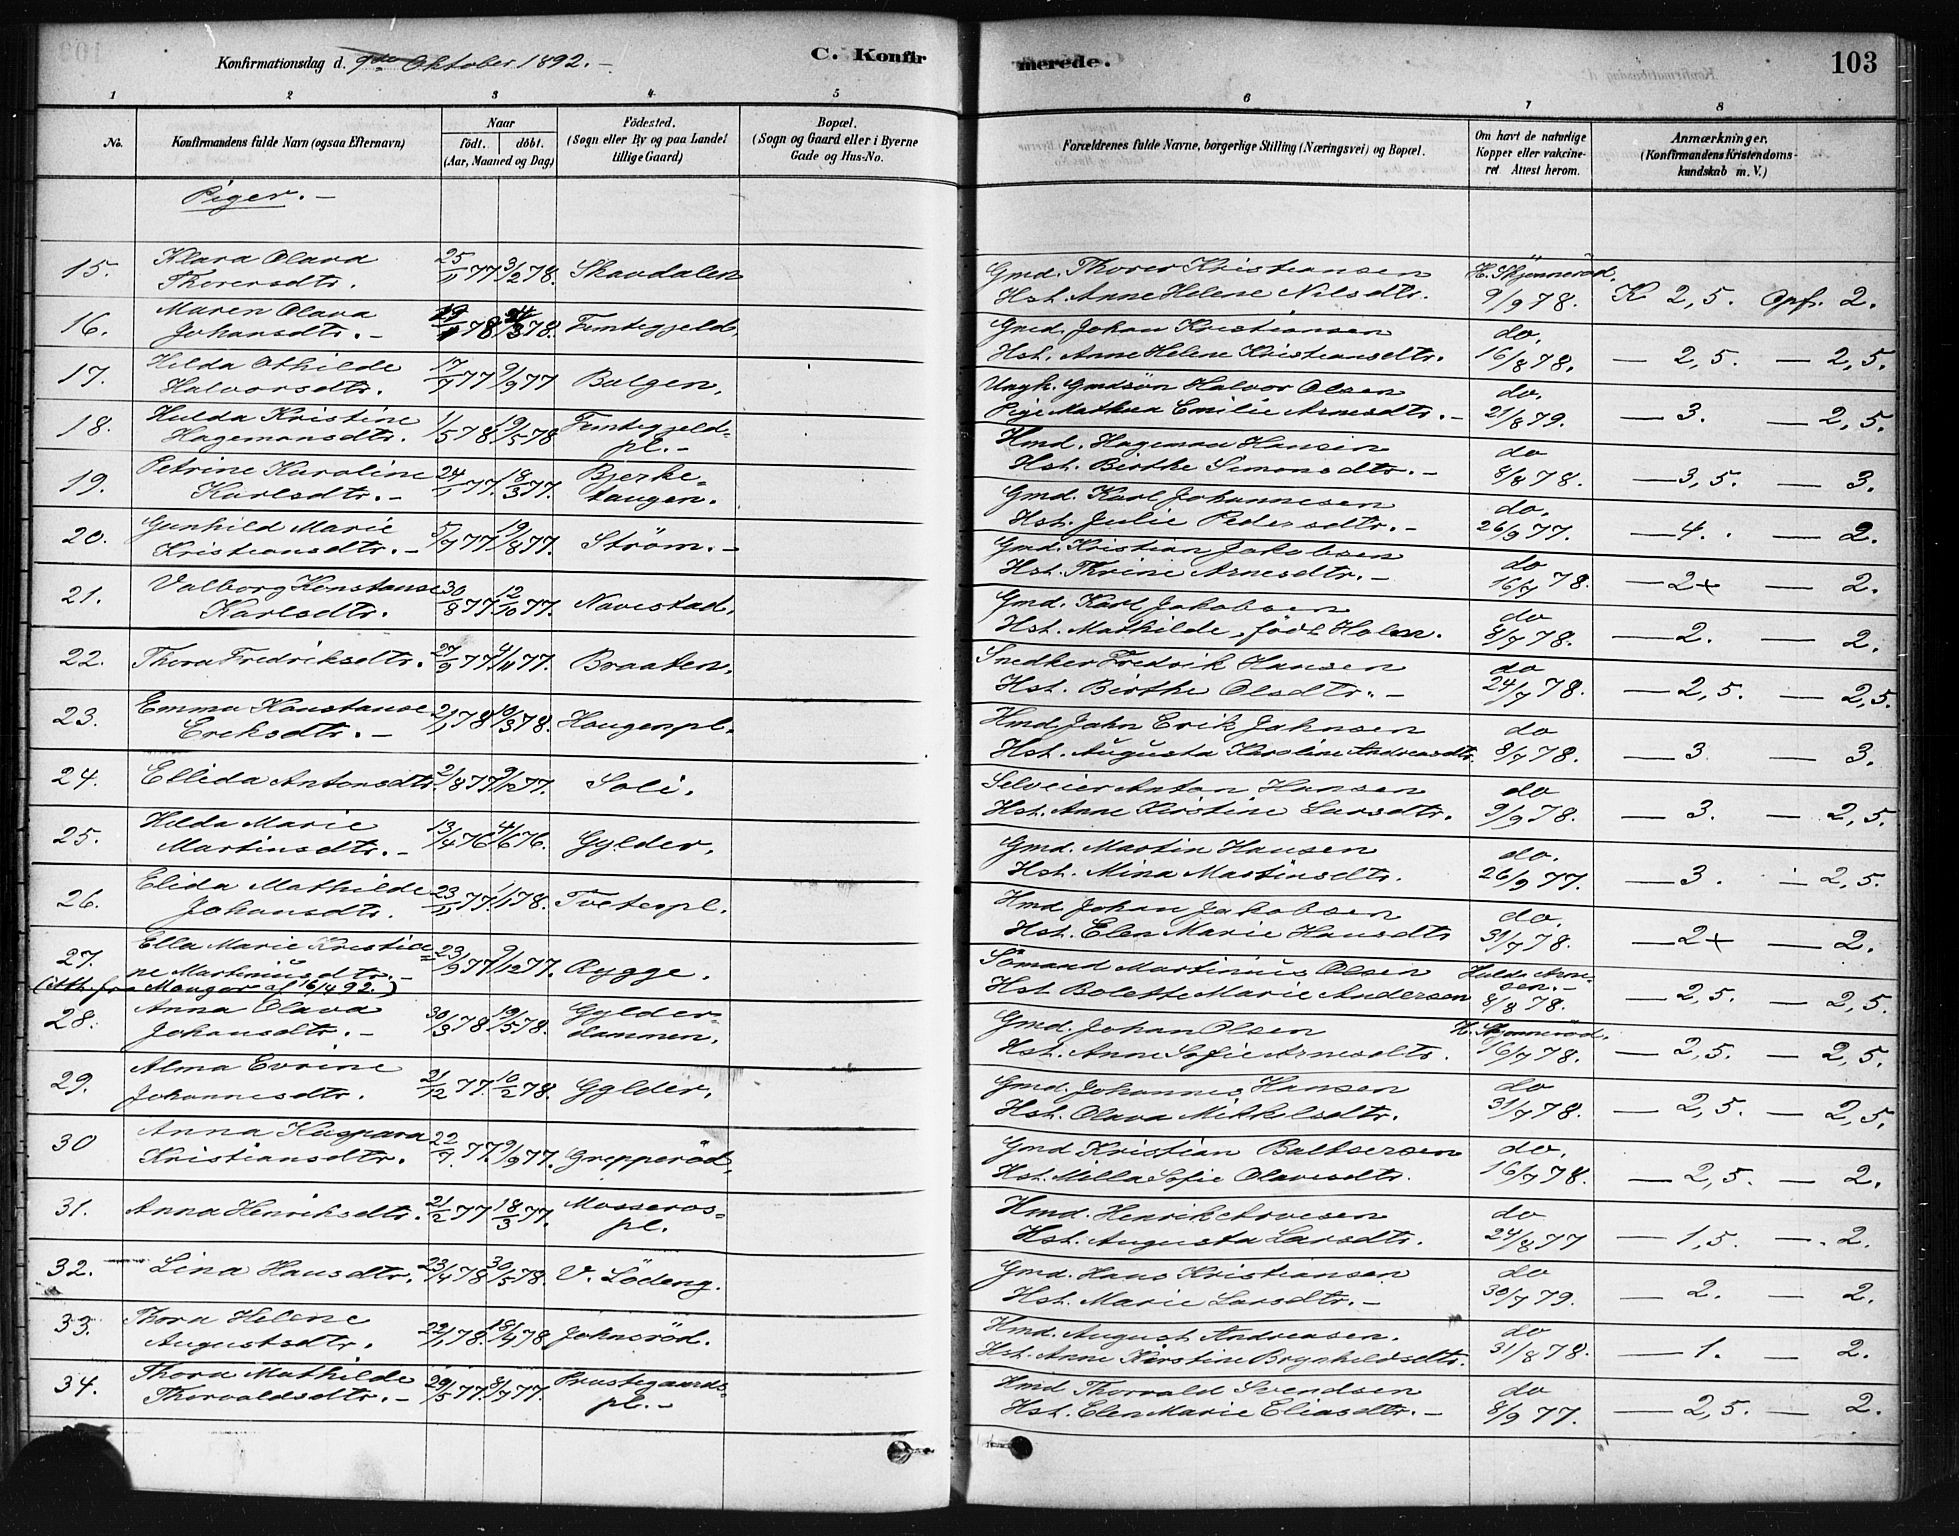 Konfirmationsdag d. 9de Oktober 1892. –
C. Konfirmerede.
103
1 2 3 4 5 6 7 8
No.
Konfirmandens fulde Navn (ogsaa Efternavn)
Naar
født. døbt.
(Aar, Maaned og Dag)
Fødested.
(Sogn eller By og paa Landet
tillige Gaard)
Bopæl.
(Sogn og Gaard eller i Byerne
Gade og Hus-No.
Forældrenes fulde Navne, borgerlige Stilling (Næringsvei) og Bopæl.
Om havt de naturlige
Kopper eller vakcine-
ret Attest herom.
Anmærkninger.
(Konfirmandens Kristendoms-
kundskab m. V.)
Piger. –
15. Klara Olava 25/11 77 3/2 78. Skavdalen Gmd. Thorer Kristiansen H. Skjønnerød.
Thorersdtr. Hst. Anne Helene Nilsdtr. 9/9 78. K 2,5. Opf. 2.
16. Maren Olava 78 78. Femtegjeld. Gmd. Johan Kristiansen do.
Johansdtr. – Hst. Anne Helene Kristiansdtr. 16/8 78. — 2,5. — 2,5.
17. Hilda Othilde 17/7 77 9/9 77 Bølgen. Ungk. Gmdsøn Halvor Olsen do.
Halvorsdtr. Pige Mathea Emilie Arnesdtr. – 21/8 79. — 3. — 2,5.
18. Hulda Kristine 1/5 78. 19/5 78 Femtegjeld- Hmd. Hageman Hansen do
Hagemansdtr. pl. – Hst. Birthe Simonsdtr. – 8/8 78. — 3,5. — 3.
19. Petrine Karoline 24/1 77. 18/3 77. Bjerke- Gmd. Karl Johannesen do.
Karlsdtr. – taugen. Hst. Julie Pedersdtr. – 26/9 77. — 4. — 2.
20. Gunhild Marie 5/7 77 19/8 77. Strøm. – Gmd. Kristian Jakobsen do
Kristiansdtr. – Hst. Thrine Arnesdtr. – 16/7 78. — 2+ — 2.
21. Valborg Konstanse 30/8 77 12/10 77. Navestad. Gmd. Karl Jakobsen do
Karlsdtr. Hst. Mathilde, født Holm. 8/7 78. — 2. — 2.
22. Thora Fredriksdtr. 27/9 77 4/11 77. Braaten. Snedker Fredrik Hansen do
Hst. Birthe Olsdtr. – 24/7 78. — 2,5. — 2,5.
23. Emma Konstanse 2/1 78 10/3 78. Haugenpl. Hmd. John Erik Johnsen do
Eriksdtr. – Hst. Augusta Karoline Andreasdtr. 8/7 78. — 3 — 3.
24. Ellida Antonsdtr 2/8 77 9/12 77. Soli. Selveier Anton Hansen do
Hst. Anne Kirstine Larsdtr. 9/9 78. — 3. — 2,5.
25. Hilda Marie 13/4 76 4/6 76. Gylder. Gmd. Martin Hansen do.
Martinsdtr. – Hst. Mina Martinsdtr. 26/9 77. — 3. — 2,5.
26. Elida Mathilde 23/11 77. 1/1 78. Tvetepl. Hmd. Johan Jakobsen do.
Johansdtr. Hst. Elen Marie Hansdtr 31/7 78. — 2+ — 2.
27. Ella Marie Kristi- 23/9 77 9/12 77. Rygge. Sømand Martinius Olsen
ne Martiniusdtr. – Hst Bolette Marie Andersen 8/8 78. — 2,5. — 2,5.
28. Anna Olava 30/3 78. 19/5 78. Gylder- Gmd. Johan Olsen H. Skjønnerød.
Johansdtr. – dammen. Hst. Anne Sofie Arnesdtr. 16/7 78. — 2,5. — 2,5.
29. Alma Evrine 21/12 77. 10/2 78. Gylder. Gmd. Johannes Hansen do
Johannesdtr. Hst. Olava Mikkelsdtr. 31/7 78. — 2,5. — 2,5.
30 Anna Kaspara 22/7 77. 9/9 77. Grepperød. Gmd Kristian Baltsersen do.
Kristiansdtr. Hst. Milla Sofie Olavesdtr. 16/7 78. — 2,5. — 2.
31. Anna Henriksdtr. 21/2 77 18/3 77. Mosseros- Hmd. Henrik Arvesen do
pl. Hst. Augusta Larsdtr. 24/8 77 — 1,5. — 2.
32. Lina Hansdtr. 23/4 78 30/5 78. V. Lødeng. Gmd. Hans Kristiansen do
Hst. Marie Larsdtr. – 30/7 79. — 2. — 2.
33. Thora Helene 22/1 78. 18/4 78. Johnsrød. Hmd. August Andreasen. do
Augustsdtr. Hst. Anne Kirstine Brynhildsdtr. 31/8 78. — 1. — 2.
34. Thora Mathilde 29/5 77. 8/7 77. Prestegaards- Hmd Thorvald Svendsen do
Thorvaldsdtr. – pl. – Hst. Elen Marie Eliasdtr. – 8/9 77. — 2,5. — 2.